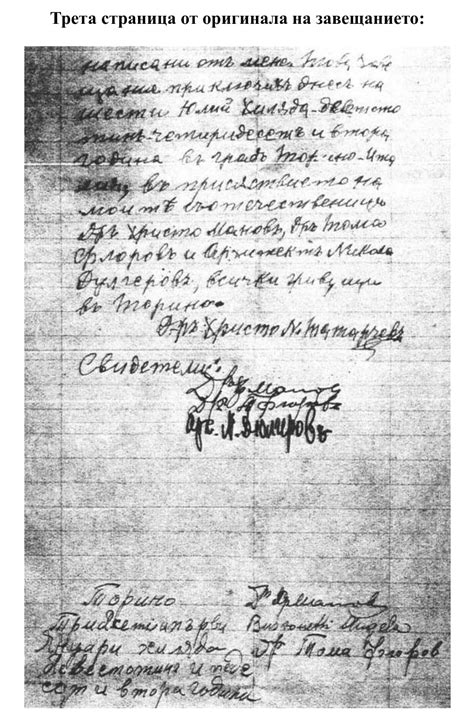 Трета страница от оригинала на завещанието:
написани отъ мене
приключихъ днесь на
шести Юлий хиляда деветсто
тинъ четиридесеть и втора
година въ градъ Торино-Ита
лия, въ присѫтствието на
моитѣ съотечественици
Дръ Христо Мановъ, Дръ Тома
Флоровъ и Архитектъ Никола
Дюлгеровъ, всички живущи
въ Торино
Дръ Христо N. Татарчевъ
Свидетели:
Дръ Х Манов
Дръ Т Флоровъ
Арх. Н. Дюлгеровъ
Торино Дръ Хр Манов
Тридесеть и първи
Януари хиляда Др Тома Флоров
деветстотинъ и пете
сет и втора година